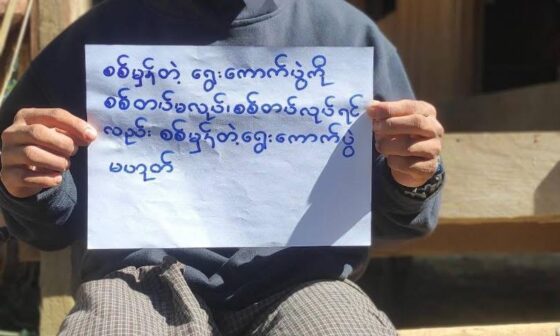 စစ်မှန်တဲ့ ရွေးကောက်ပွဲကို
စစ်တပ်မလုပ်၊စစ်တပ်လုပ်ရင်
လည်း စစ်မှန်တဲ့ရွေးကောက်ပွဲ
မဟုတ်